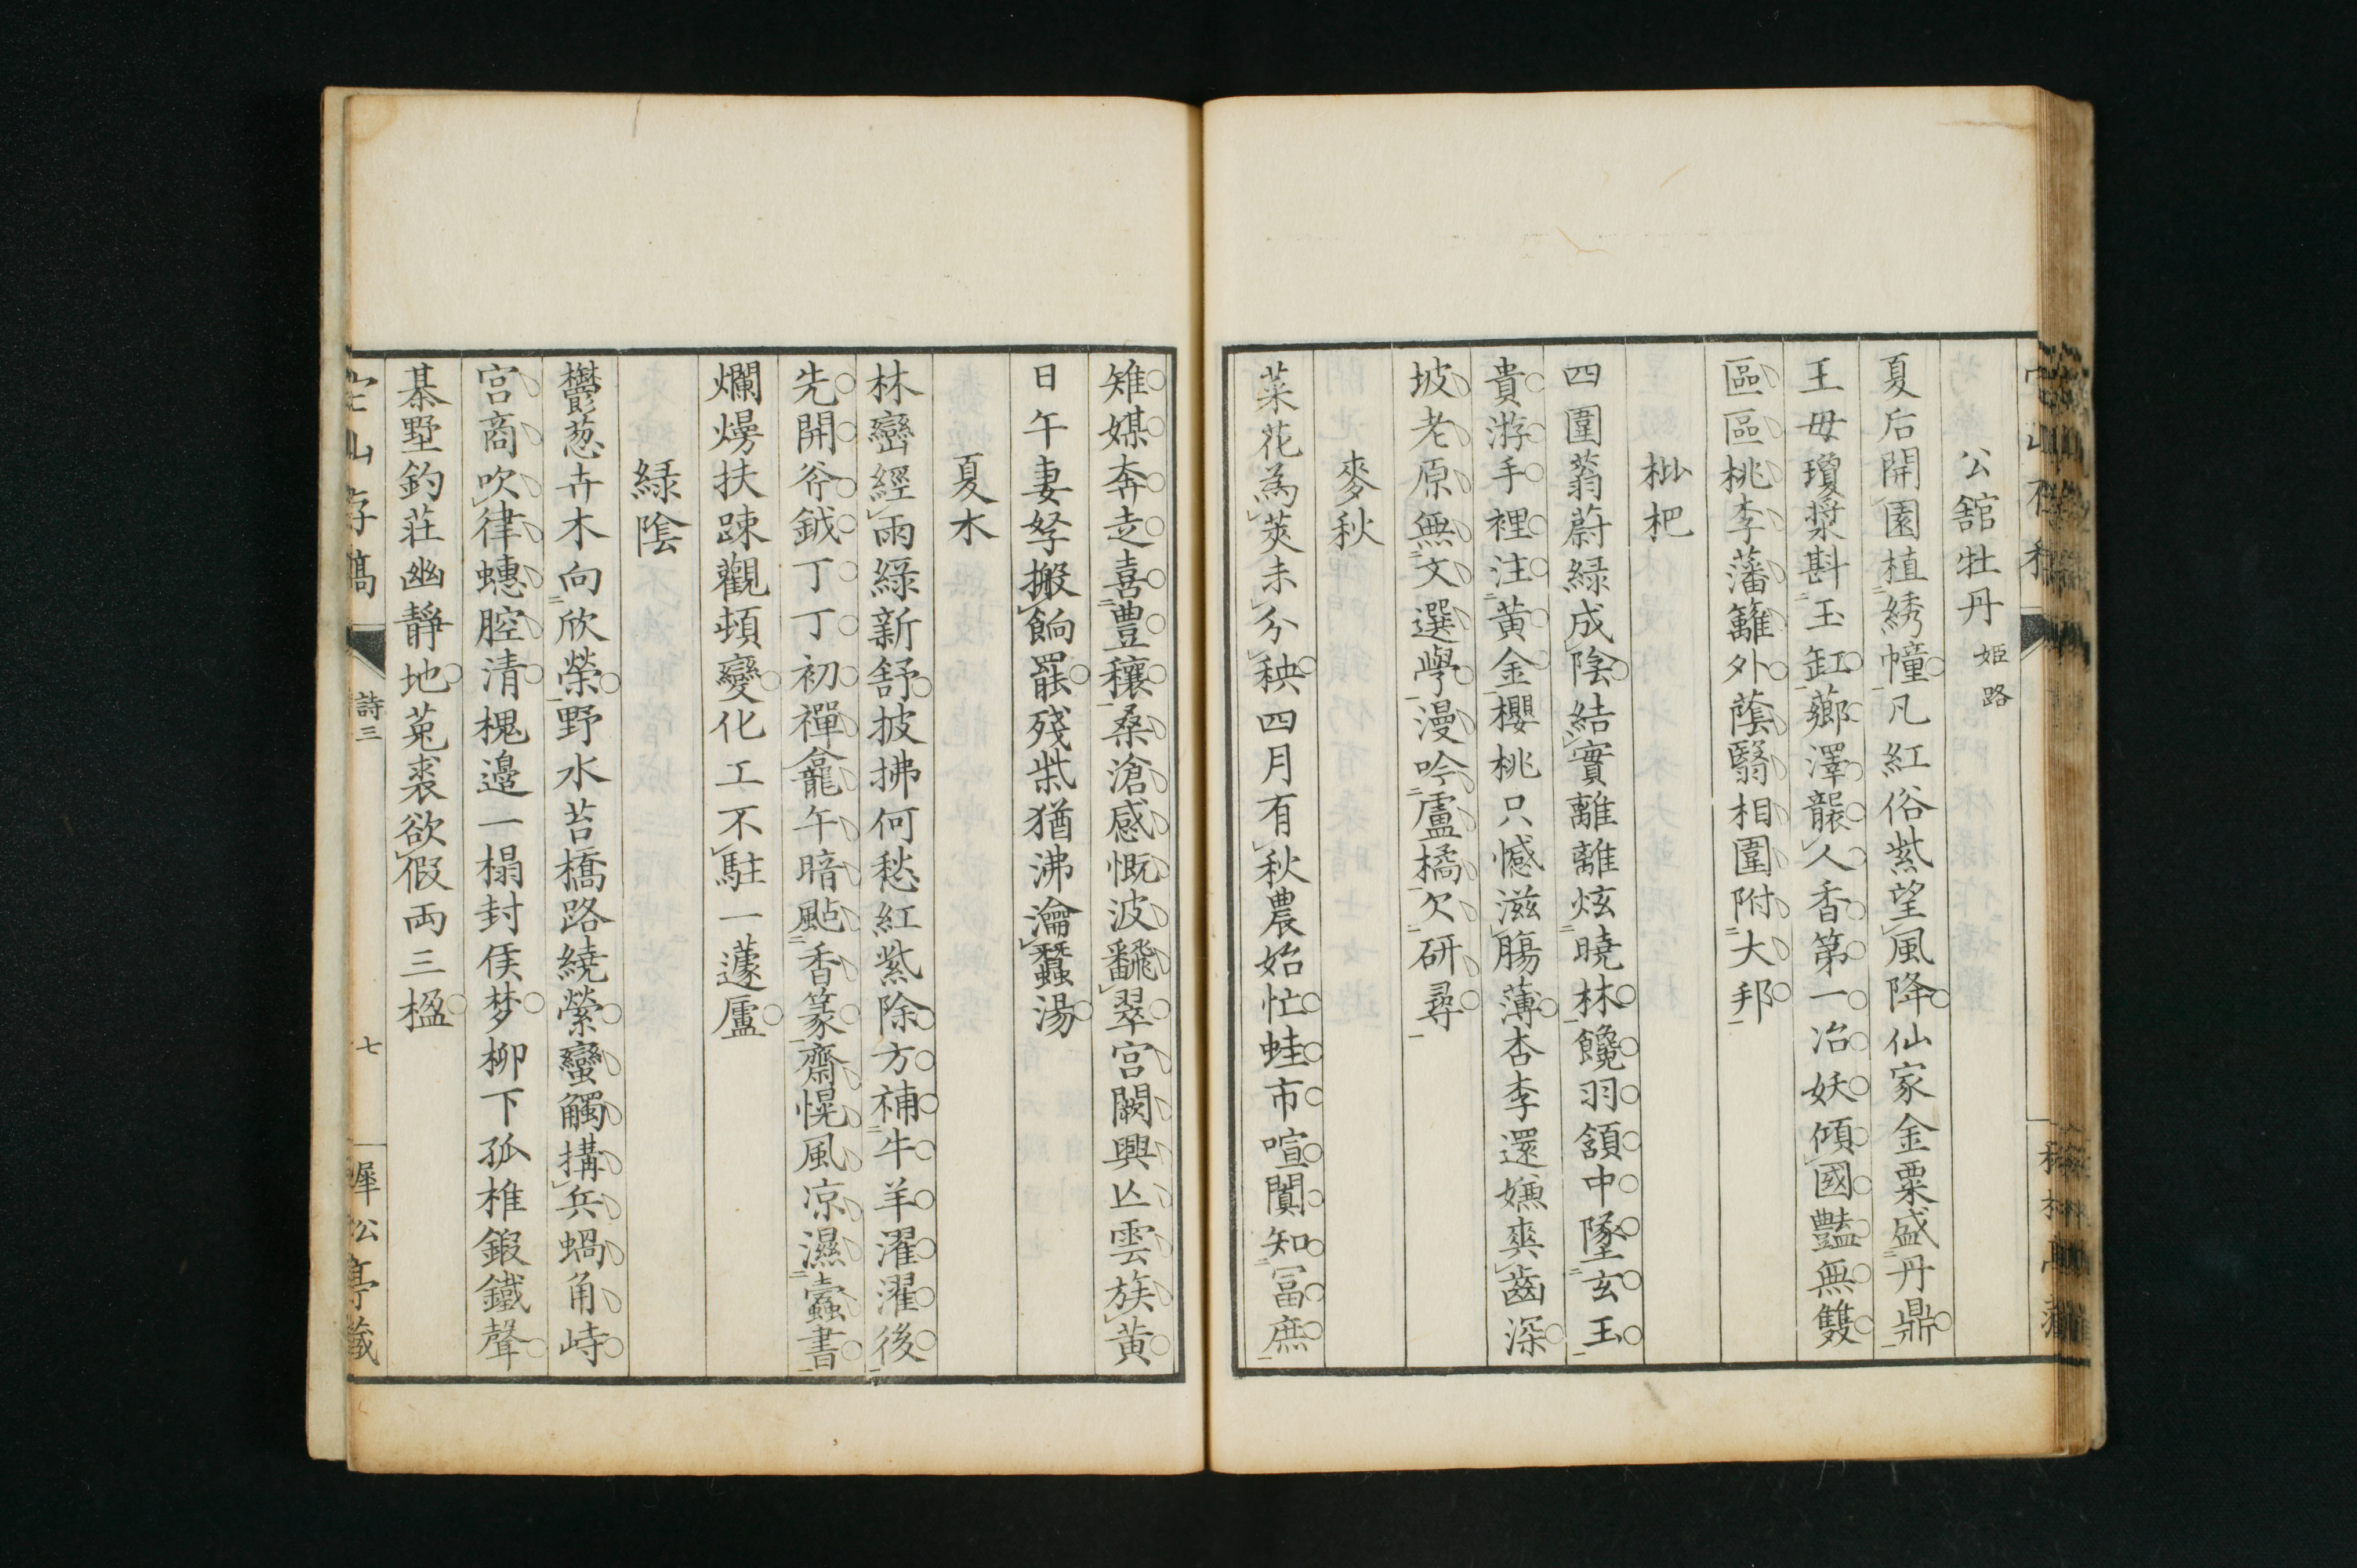 公舘牡丹 姫路
夏后開園植綉幢凡紅俗紫望風降仙家金粟盛丹鼎
王母瓊漿斟玉缸薌澤襲人香第一冶妖傾國豔無雙
區區桃李藩籬外蔭翳相圍附大邦
枇杷
四圍蓊蔚緑成陰結實離離炫曉林饞羽頷中墜玄玉
貴游手裡注黄金櫻桃只憾滋腸薄杏李還嫌爽齒深
坡老原無文選學漫吟盧橘欠研尋
麥秋
菜花為莢未分秧四月有秋農始忙蛙市喧闐知冨庶
雉媒奔走喜豊穰桑滄感慨波飜翠宮闕興亾雲族黄
日午妻孥搬餉罷殘柴猶沸瀹蠶湯
夏木
林巒經雨緑新舒披拂何愁紅紫除方補牛羊濯濯後
先開斧鉞丁丁初禪龕午暗颭香篆齋幌風凉濕蠹書
爛熳扶踈觀頓變化工不駐一蘧廬
緑陰
鬱葱卉木向欣榮野水苔橋路繞縈蠻觸搆兵蝸角峙
宮商吹律蟪腔清槐邉一榻封侯梦柳下孤椎鍜鐵聲
棊墅釣荘幽靜地菟裘欲假両三楹
存稿
詩三
七
犀公亭藏